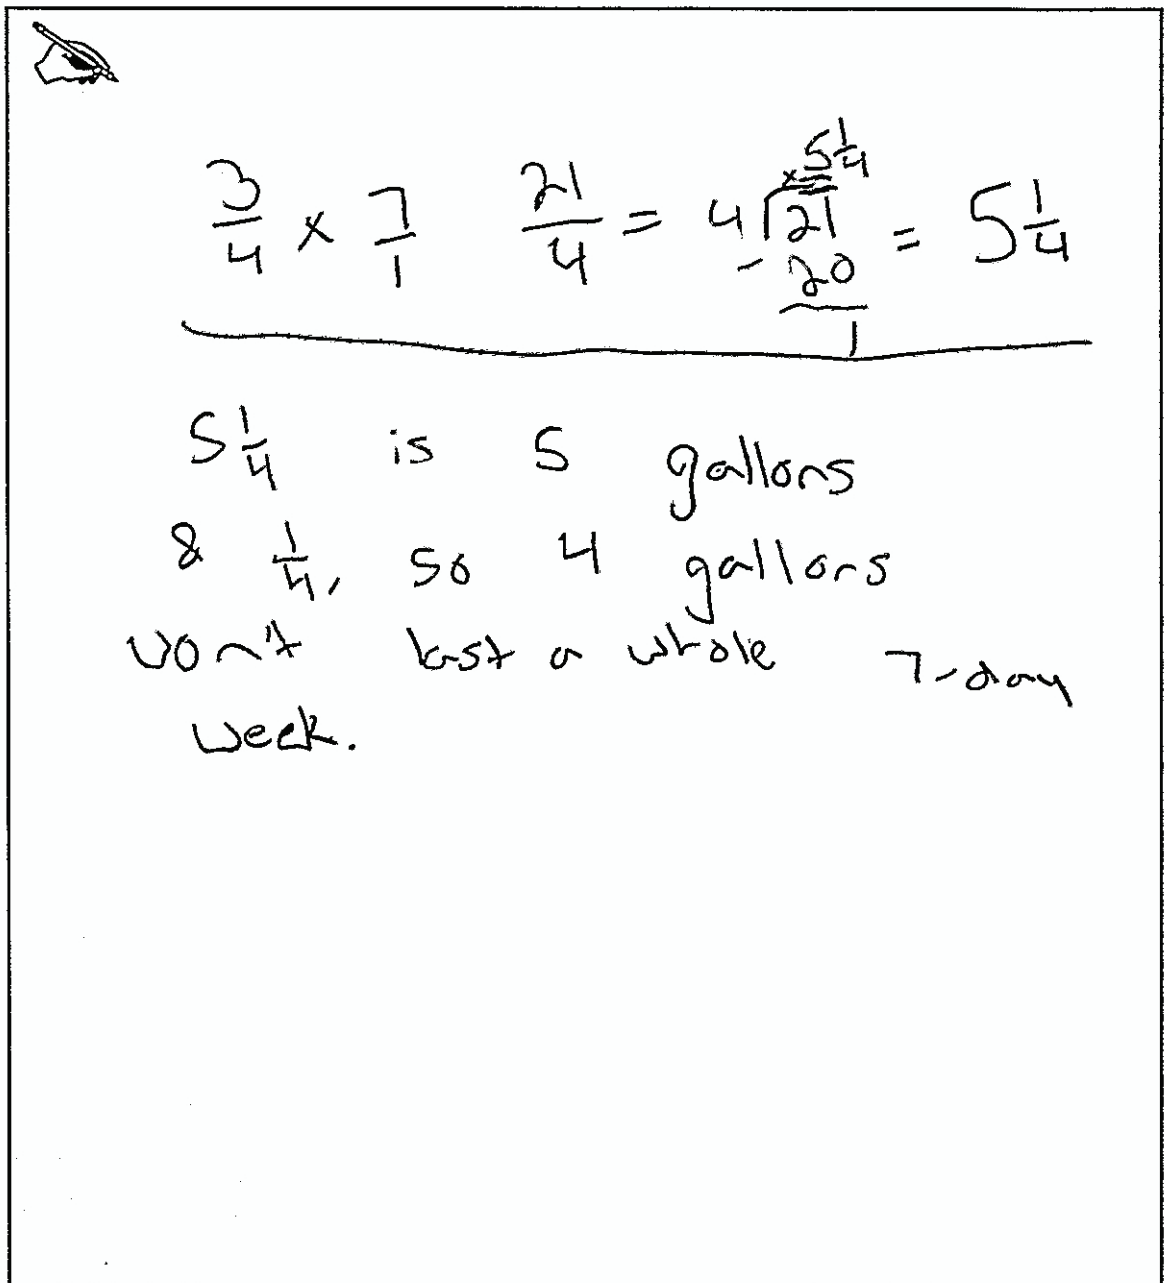 3/4 × 7/1 21/4 = 4⟌21 5 1/4 = 5 1/4
- 20
1
5 1/4 is 5 gallons
& 1/4, so 4 gallons
won't last a whole 7-day
week.